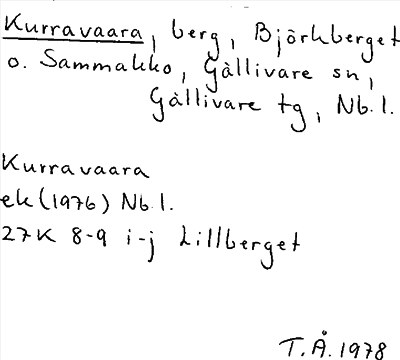 Kurravaara, berg, Björkberget
o. Sammakko, Gällivare sn,
Gällivare tg, Nb.l.
Kurravaara
ek (1976) Nb.l.
27K 8-9 i-j Lillberget
T.Å. 1978